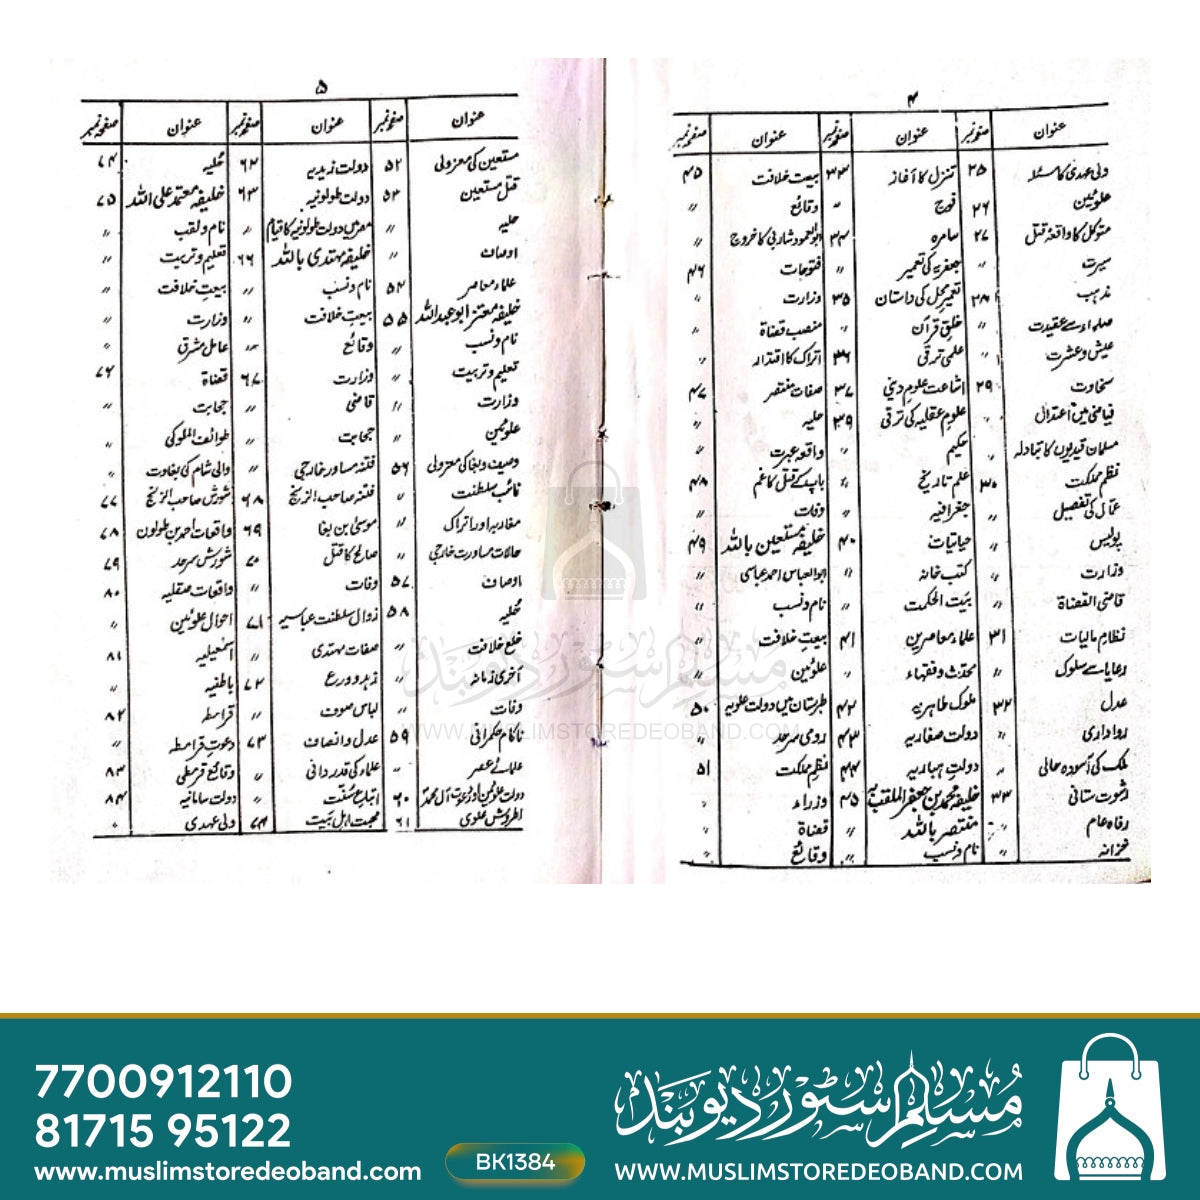 ۴
عنوان صفحہ نمبر عنوان صفحہ نمبر عنوان صفحہ نمبر
ولی عہدی کا مسئلہ ۲۵ تنزل کا آغاز ۳۳ بیعت خلافت ۴۵
علوئین ۲۶ فوج " وقائع "
متوکل کا واقعۂ قتل ۲۷ سامرہ ۳۴ ابوالعمود شاربی کا خروج "
سیرت " جعفریہ کی تعمیر " فتوحات ۴۶
مذہب ۲۸ تعمیر محل کی داستان ۳۵ وزارت "
صلحاء سے عقیدت " خلق قرآن " منصب قضاۃ "
عیش و عشرت " علمی ترقی ۳۶ اتراک کا اقتدار "
سخاوت ۲۹ اشاعت علوم دینی ۳۷ صفات منتصر ۴۷
فیاضی میں اعتدال " علوم عقلیہ کی ترقی ۳۹ حلیہ "
مسلمان قیدیوں کا تبادلہ حکیم " واقعہ عبرت "
نظم مملکت ۳۰ علم تاریخ " باپ کے قتل کا غم ۴۸
عمّال کی تفصیل " جغرافیہ " وفات "
پولیس " حیاتیات ۴۰ خلیفہ مستعین باللہ ۴۹
وزارت " کتب خانہ " ابوالعباس احمد عباسی "
قاضی القضاۃ " بیت الحکمت " نام و نسب "
نظام مالیات ۳۱ علماء معاصرین ۴۱ بیعت خلافت "
رعایا سے سلوک " محدث و فقہاء " علوئین "
عدل ۳۲ ملوک طاہریہ ۴۲ طبرستان میں دولت علویہ ۵۰
رواداری " دولت صفاریہ ۴۳ رومی سرحد "
ملک کی آسودہ حالی " دولت ہباریہ ۴۴ نظم مملکت ۵۱
رشوت ستانی ۳۳ خلیفہ محمد بن جعفر الملقب بہ ۴۵ وزراء "
رفاہ عام " منتصر باللہ " قضاۃ "
خزانہ " نام و نسب " وقائع "
۵
عنوان صفحہ نمبر عنوان صفحہ نمبر عنوان صفحہ نمبر
مستعین کی معزولی ۵۲ دولت زیدیہ ۶۲ حلیہ ۷۴
قتل مستعین ۵۳ دولت طولونیہ ۶۳ خلیفہ معتمد علی اللہ ۷۵
حلیہ " مصر میں دولت طولونیہ کا قیام " نام و لقب "
اوصاف " خلیفہ مہتدی باللہ ۶۶ تعلیم و تربیت "
علماء معاصر ۵۴ نام و نسب " بیعت خلافت "
خلیفہ معتز ابو عبداللہ ۵۵ بیعت خلافت " وزارت "
نام و نسب " وقائع " عامل مشرق "
تعلیم و تربیت " وزارت ۶۷ قضاۃ ۷۶
وزارت " قاضی " حجابت "
علوئین " حجابت " طوائف الملوکی "
وصیف و بغا کی معزولی ۵۶ فتنہ مساور خارجی " والی شام کی بغاوت "
نائب سلطنت " فتنہ صاحب الزنج ۶۸ شورش صاحب الزنج ۷۷
مغاربہ اور اتراک " موسیٰ بن بغا ۶۹ واقعات احمد بن طولون ۷۸
حالات مساورت خارجی " صالح کا قتل ۷۰ شورش سرحد ۷۹
اوصاف ۵۷ وفات " واقعات صقلیہ ۸۰
حلیہ ۵۸ زوال سلطنت عباسیہ ۷۱ احوال علوئین "
خلع خلافت " صفات مہتدی " اسمٰعیلیہ ۸۱
آخری زمانہ " زہد و ورع ۷۲ باطنیہ "
وفات " لباس صوف " قرامطہ ۸۲
ناکام حکمرانی ۵۹ عدل و انصاف ۷۳ دعوت قرامطہ "
علمائے عصر " علماء کی قدردانی " وقائع قرمطی ۸۳
دولت علوئین اور دعوت آل محمد ۶۰ اتباع سنت " دولت سامانیہ ۸۴
اطروش علوی ۶۱ محبت اہل بیت ۷۴ ولی عہدی "
مسلم سٹور دیوبند
WWW.MUSLIMSTOREDEOBAND.COM
7700912110
81715 95122
www.muslimstoredeoband.com
BK1384
مسلم سٹور دیوبند
WWW.MUSLIMSTOREDEOBAND.COM